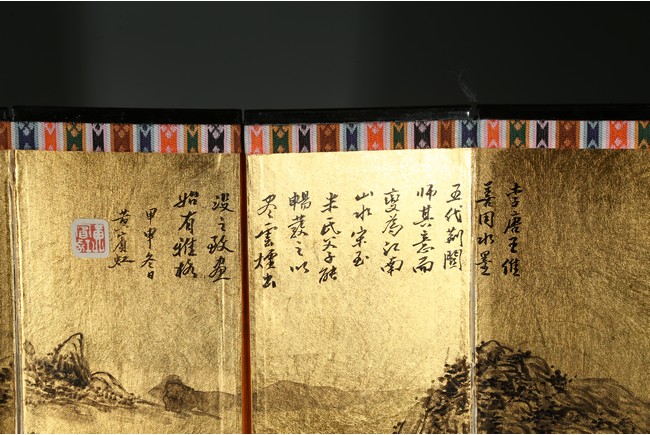 李唐王維
善用水墨
五代荊關
師其意而
變為江南
山水宋至
米氏父子能
暢發之以
尽雲煙出
沒之致畫
始有雅格
甲申冬日
黃賓虹